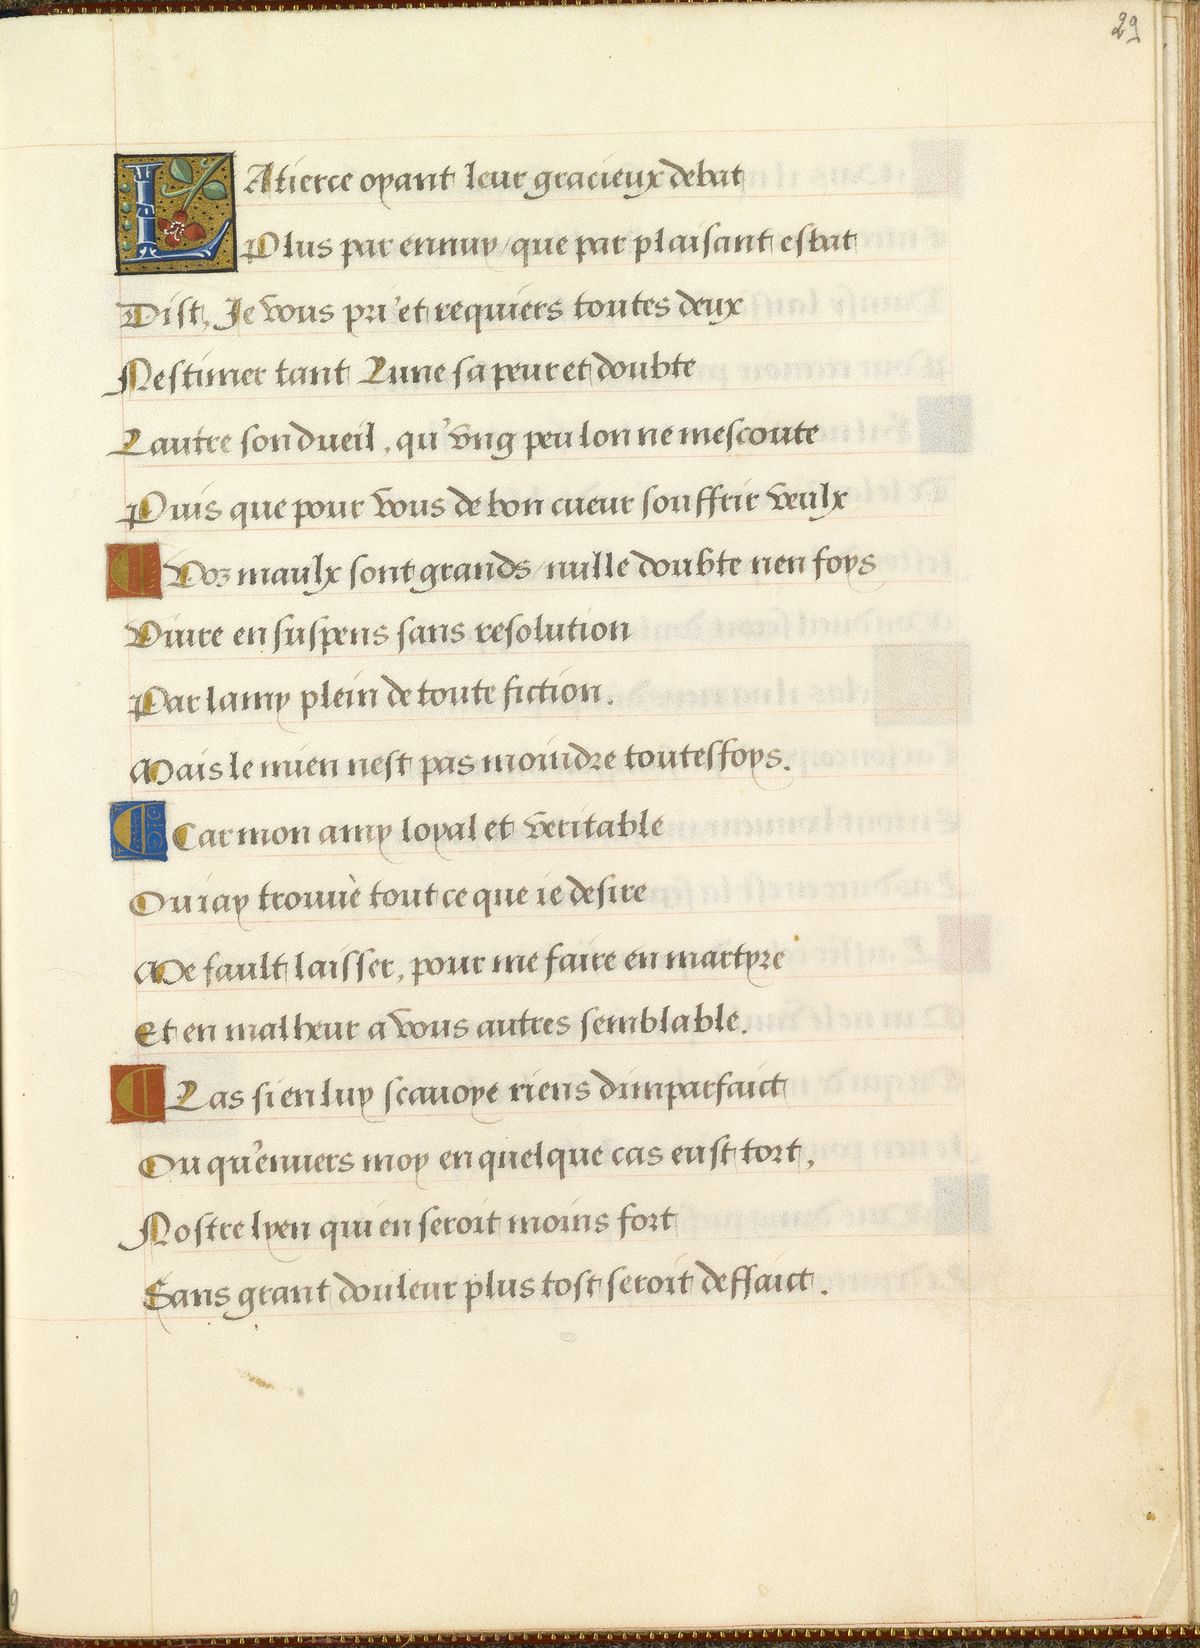 29
LA tierce oyant leur gracieux debat
Plus par ennuy / que par plaisant esbat
Dist, Je vous pri' et requiers toutes deux
Nestimer tant Lune sa peur et doubte
Lautre son dueil, qu'vng peu lon ne mescoute
Puis que pour vous de bon cueur souffrir veulx
Voz maulx sont grands / nulle doubte nen foys
Viure en suspens sans resolution
Par lamy plein de toute fiction.
Mais le mien nest pas moindre toutesfoys.
Car mon amy loyal et veritable
Ou iay trouuè tout ce que ie desire
Me fault laisser, pour me faire en martyre
Et en malheur a vous autres semblable.
Las si en luy scauoye riens dimparfaict
Ou qu'enuers moy en quelque cas eust tort,
Nostre lyen qui en seroit moins fort
Sans grant douleur plus tost seroit deffaict.